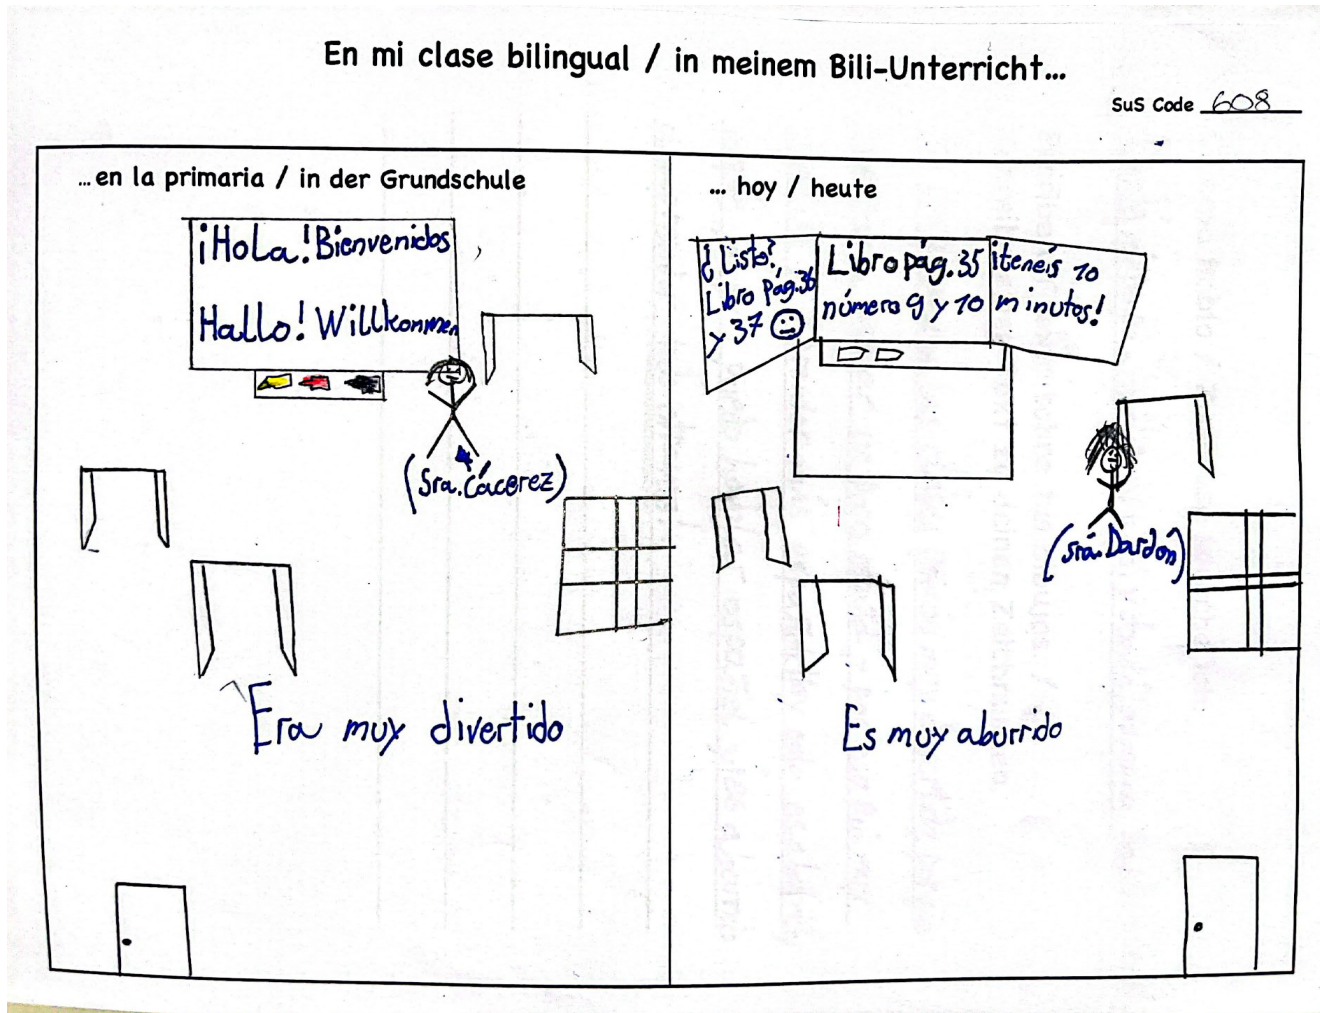 En mi clase bilingual / in meinem Bili-Unterricht...
SuS Code 608
...en la primaria / in der Grundschule
¡Hola! Bienvenidos
Hallo! Willkommen
(Sra. Cácerez)
Era muy divertido
... hoy / heute
¿Listo?
Libro Pág. 36
y 37
Libro pág. 35
número 9 y 10
¡teneís 10
minutos!
(Srá. Dardón)
Es muy aburrido